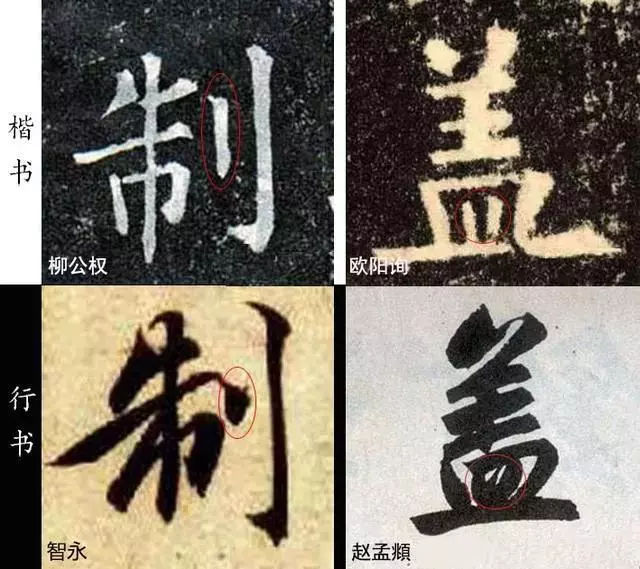 楷书
制
柳公权
盖
欧阳询
行书
制
智永
盖
赵孟頫